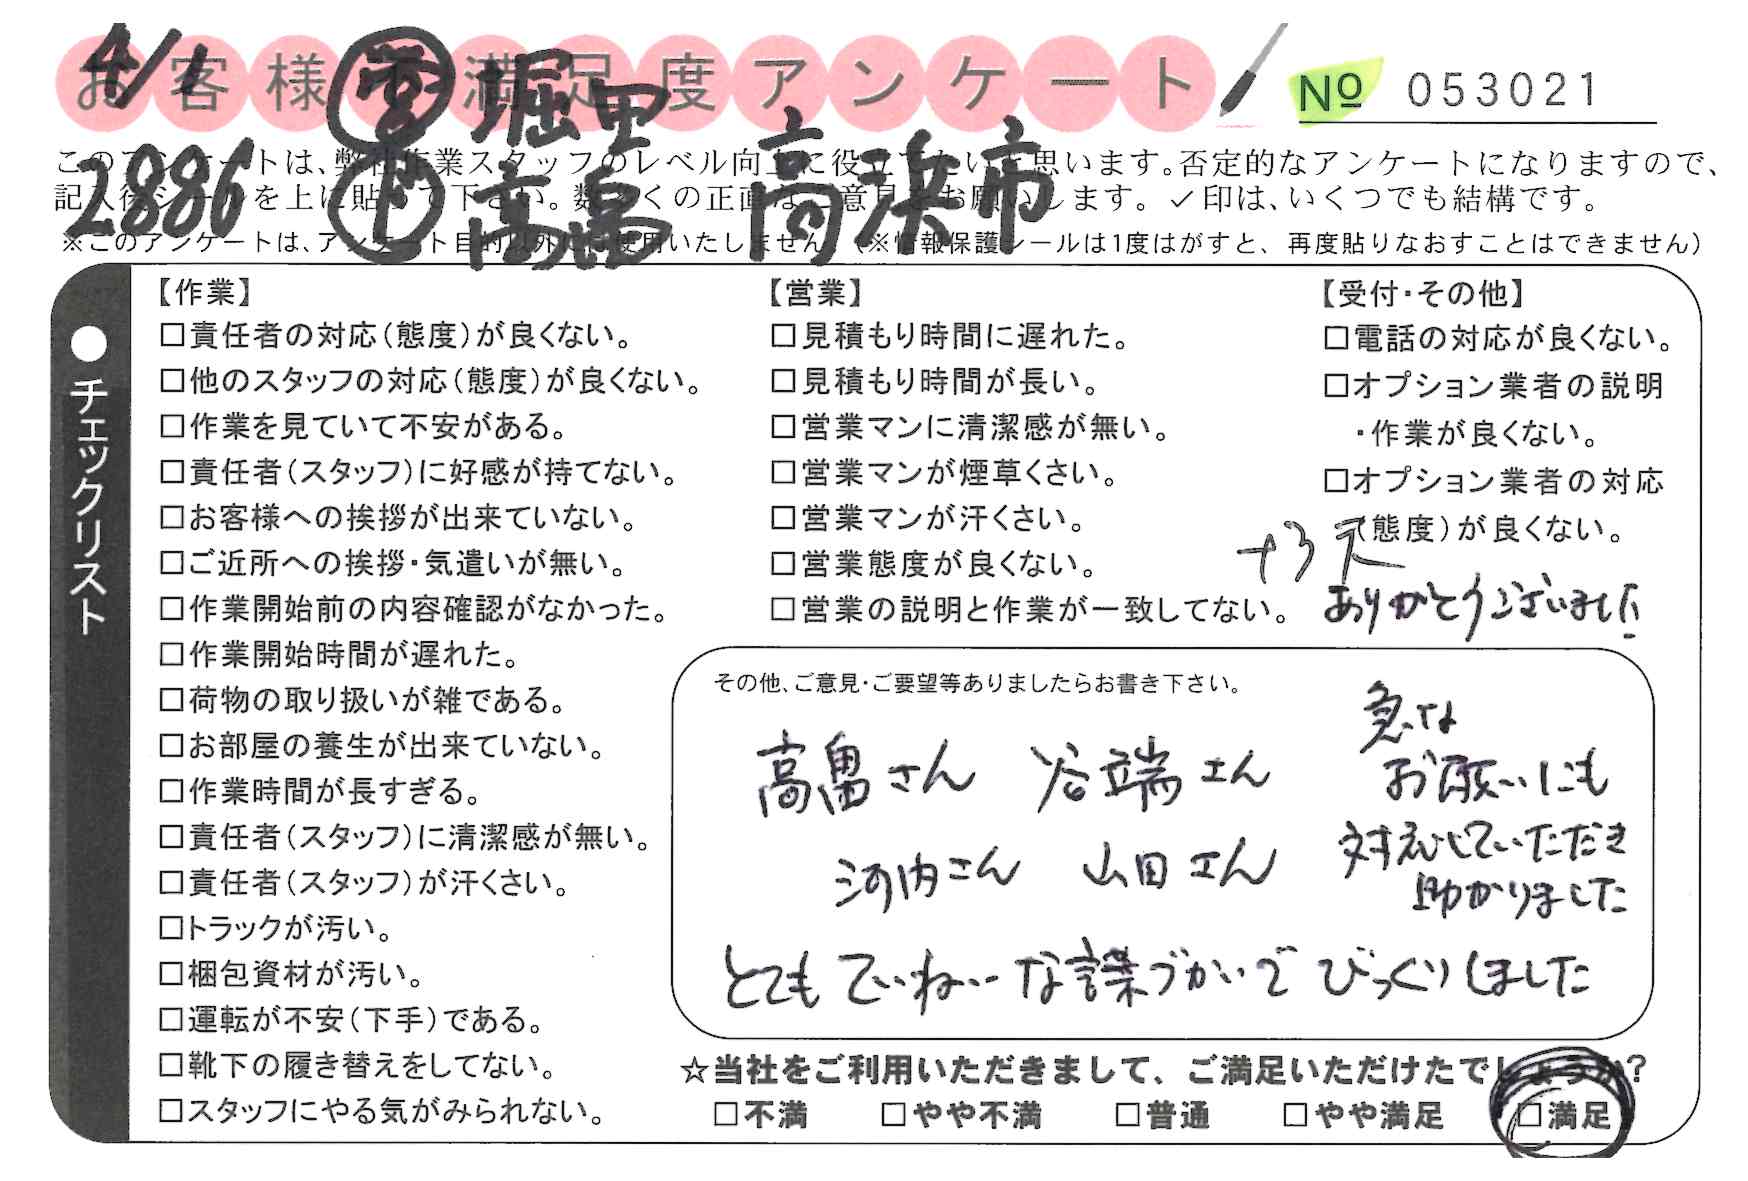 お客様不満足度アンケート
4/1 営 堀里
№ 053021
2886 ト 高畠 高浜市
このアンケートは、弊社作業スタッフのレベル向上に役立てたいと思います。否定的なアンケートになりますので、
記入後シールを上に貼って下さい。数多くの正直なご意見をお願いします。✓印は、いくつでも結構です。
※このアンケートは、アンケート目的以外には使用いたしません。(※情報保護シールは1度はがすと、再度貼りなおすことはできません)
●チェックリスト
【作業】
□責任者の対応(態度)が良くない。
□他のスタッフの対応(態度)が良くない。
□作業を見ていて不安がある。
□責任者(スタッフ)に好感が持てない。
□お客様への挨拶が出来ていない。
□ご近所への挨拶・気遣いが無い。
□作業開始前の内容確認がなかった。
□作業開始時間が遅れた。
□荷物の取り扱いが雑である。
□お部屋の養生が出来ていない。
□作業時間が長すぎる。
□責任者(スタッフ)に清潔感が無い。
□責任者(スタッフ)が汗くさい。
□トラックが汚い。
□梱包資材が汚い。
□運転が不安(下手)である。
□靴下の履き替えをしてない。
□スタッフにやる気がみられない。
【営業】
□見積もり時間に遅れた。
□見積もり時間が長い。
□営業マンに清潔感が無い。
□営業マンが煙草くさい。
□営業マンが汗くさい。
□営業態度が良くない。
□営業の説明と作業が一致してない。
【受付・その他】
□電話の対応が良くない。
□オプション業者の説明
・作業が良くない。
□オプション業者の対応
(態度)が良くない。
ありがとうございました!
その他、ご意見・ご要望等ありましたらお書き下さい。
高畠さん 谷端さん
河内さん 山田さん
急な
お願いにも
対応していただき
助かりました
とてもていねいな言葉づかいでびっくりしました
☆当社をご利用いただきまして、ご満足いただけたでしょうか?
□不満 □やや不満 □普通 □やや満足 □満足